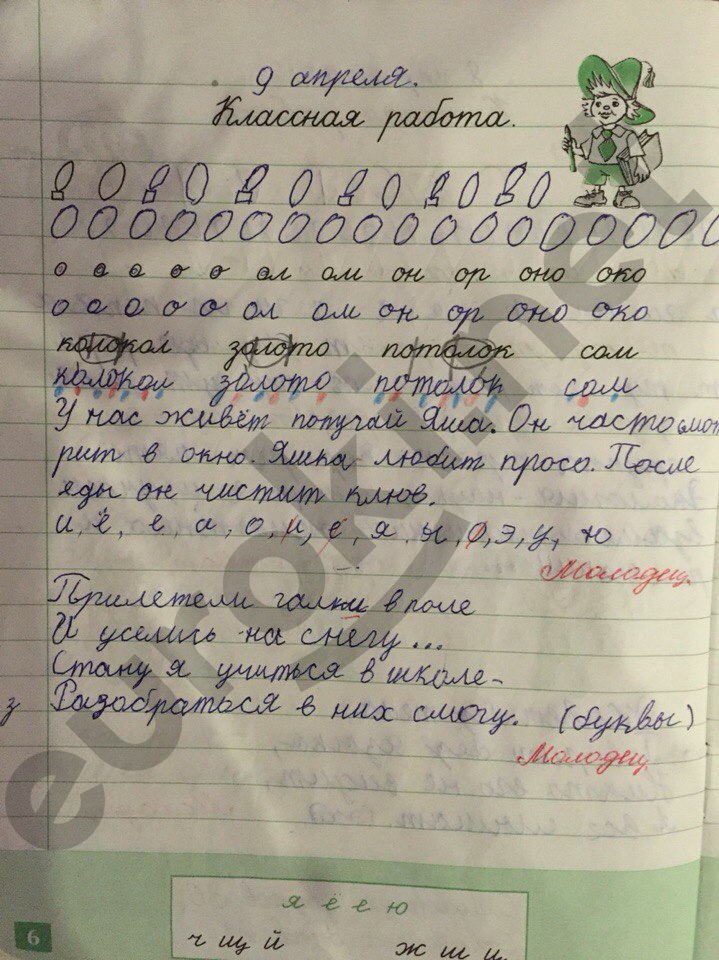 9 апреля.
Классная работа.
о а а о о ол ом он ор оно око
о а а о о ол ом он ор оно око
колокол золото потолок сом
колокол золото потолок сом
У нас живёт попугай Яша. Он часто смот
рит в окно. Яшка любит просо. После
еды он чистит клюв.
и, ё, е, а, о, и, е, я, ы, о, э, у, ю
Молодец.
Прилетели галки в поле
И уселись на снегу...
Стану я учиться в школе-
з Разобраться в них смогу. (буквы)
Молодец
я ё е ю
6
ч щ й ж ш ц
euroki.net